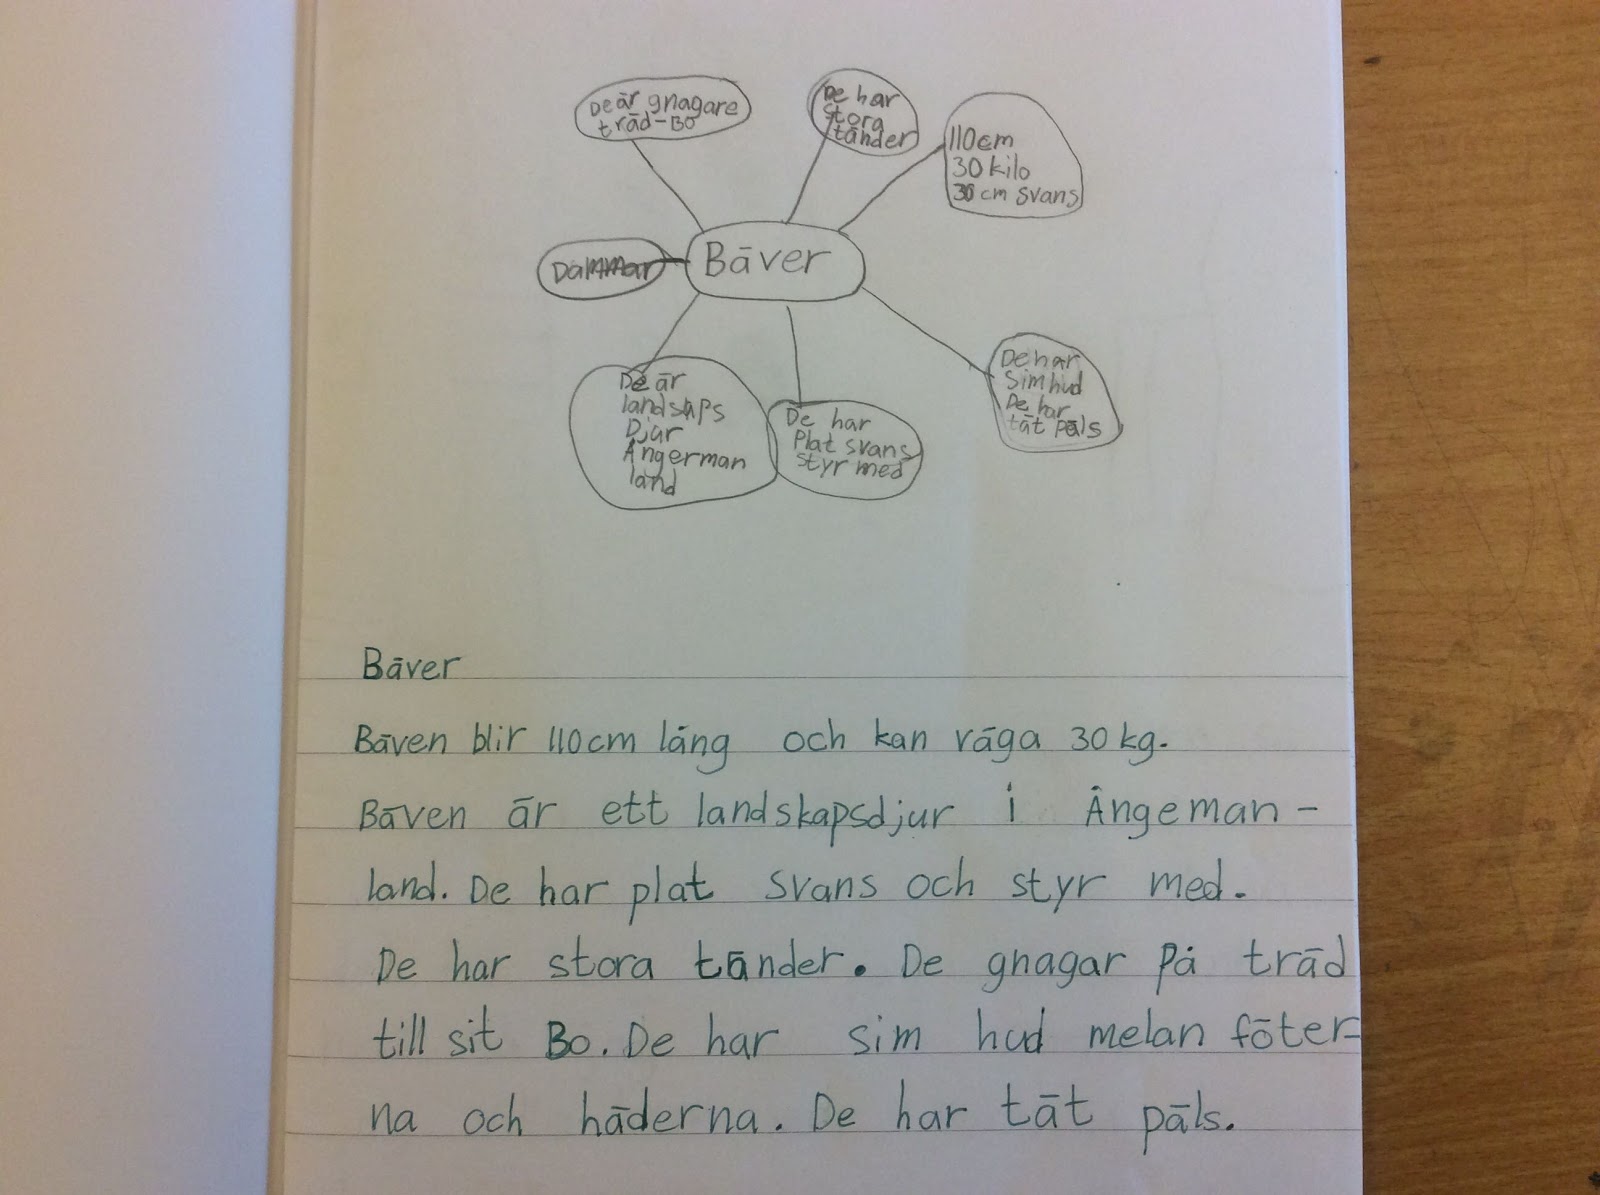 De är gnagare
träd-Bo
De har
stora
tänder
110cm
30 kilo
30 cm svans
Dammar
Bäver
De är
landsaps
Djur
Ångerman
land
De har
Plat svans
styr med
De har
Simhud
De har
tät päls
Bäver
Bäven blir 110cm lång och kan väga 30 kg.
Bäven är ett landskapsdjur i Ångeman-
land. De har plat svans och styr med.
De har stora tänder. De gnagar på träd
till sit Bo. De har sim hud melan föter-
na och häderna. De har tät päls.